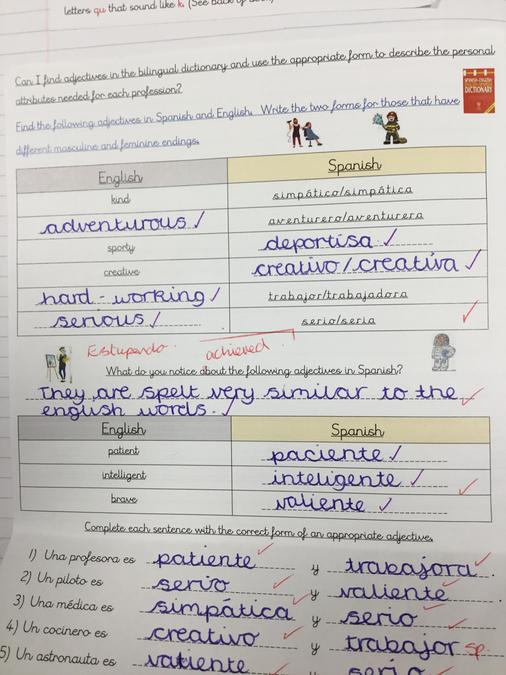 letters qu that sound like k. (See back of
Can I find adjectives in the bilingual dictionary and use the appropriate form to describe the personal
attributes needed for each profession?
SPANISH-ENGLISH
DICTIONARY
Find the following adjectives in Spanish and English. Write the two forms for those that have
different masculine and feminine endings.
English Spanish
kind simpático/simpática
adventurous aventurero/aventurera
sporty deportisa
creative creativo/creativa
hard-working trabajor/trabajadora
serious serio/seria
Estupendo. achieved
What do you notice about the following adjectives in Spanish?
They are spelt very similar to the
english words.
English Spanish
patient paciente
intelligent inteligente
brave valiente
Complete each sentence with the correct form of an appropriate adjective.
1) Una profesora es patiente y trabajora.
2) Un piloto es serio y valiente.
3) Una médica es simpática y serio
4) Un cocinero es creativo y trabajor sp.
5) Un astronauta es vatiente y serio